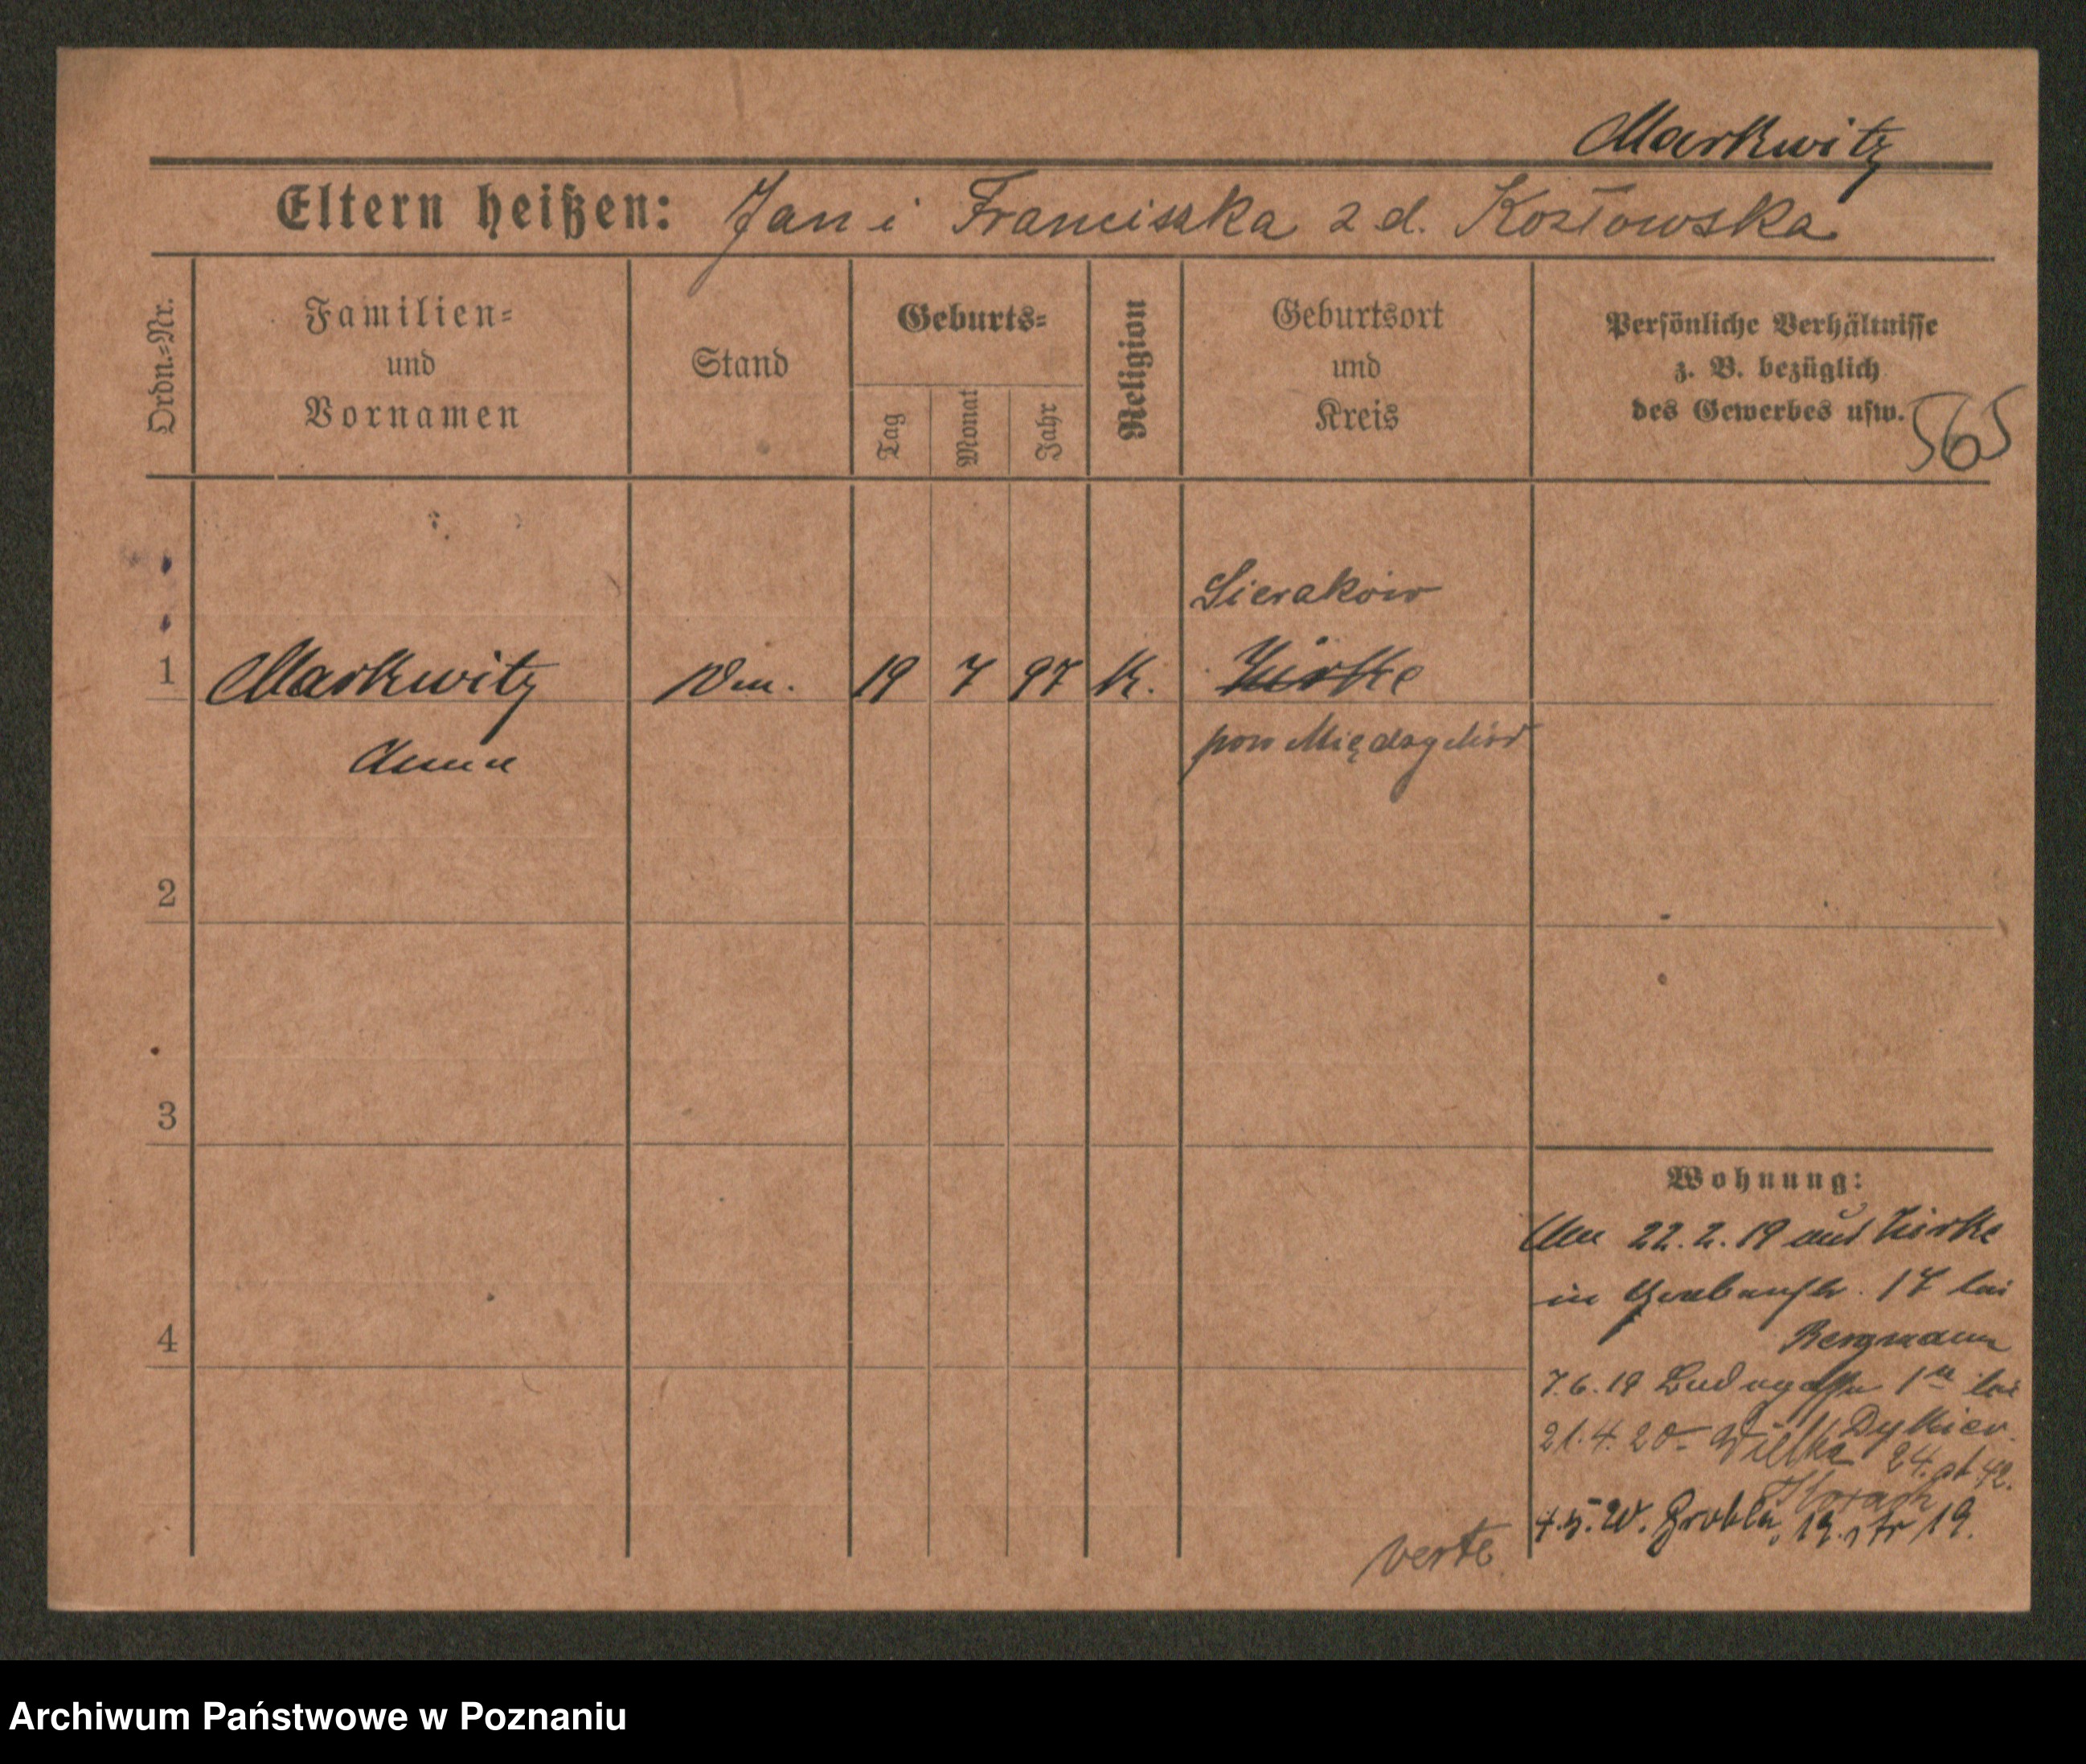 Markwitz
Eltern heißen: Jan i Franciszka z d. Kozłowska
Ordn.-Nr.
Familien-
und
Vornamen
Stand
Geburts-
Tag
Monat
Jahr
Religion
Geburtsort
und
Kreis
Persönliche Verhältnisse
z. B. bezüglich
des Gewerbes usw.
565
Sieraków
1 Markwitz 19 7 97 K. Zirke
Anna
pow Międzychód
2
3
4
Wohnung:
22.2.19 aus Zirke
in 17 bei
Bergmann
7.6.19 1 bei
21.4.20 Wielka 24. pt 42.
Grobla 19.
verte
Archiwum Państwowe w Poznaniu